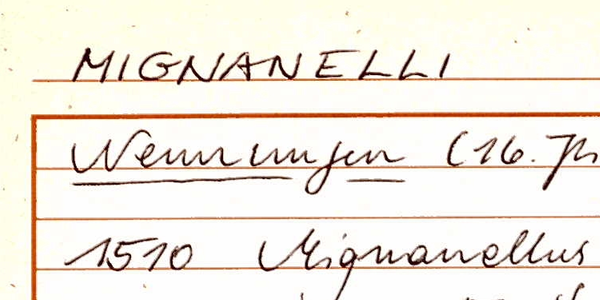 MIGNANELLI
Nennungen (16. Jh
1510 Mignanellus